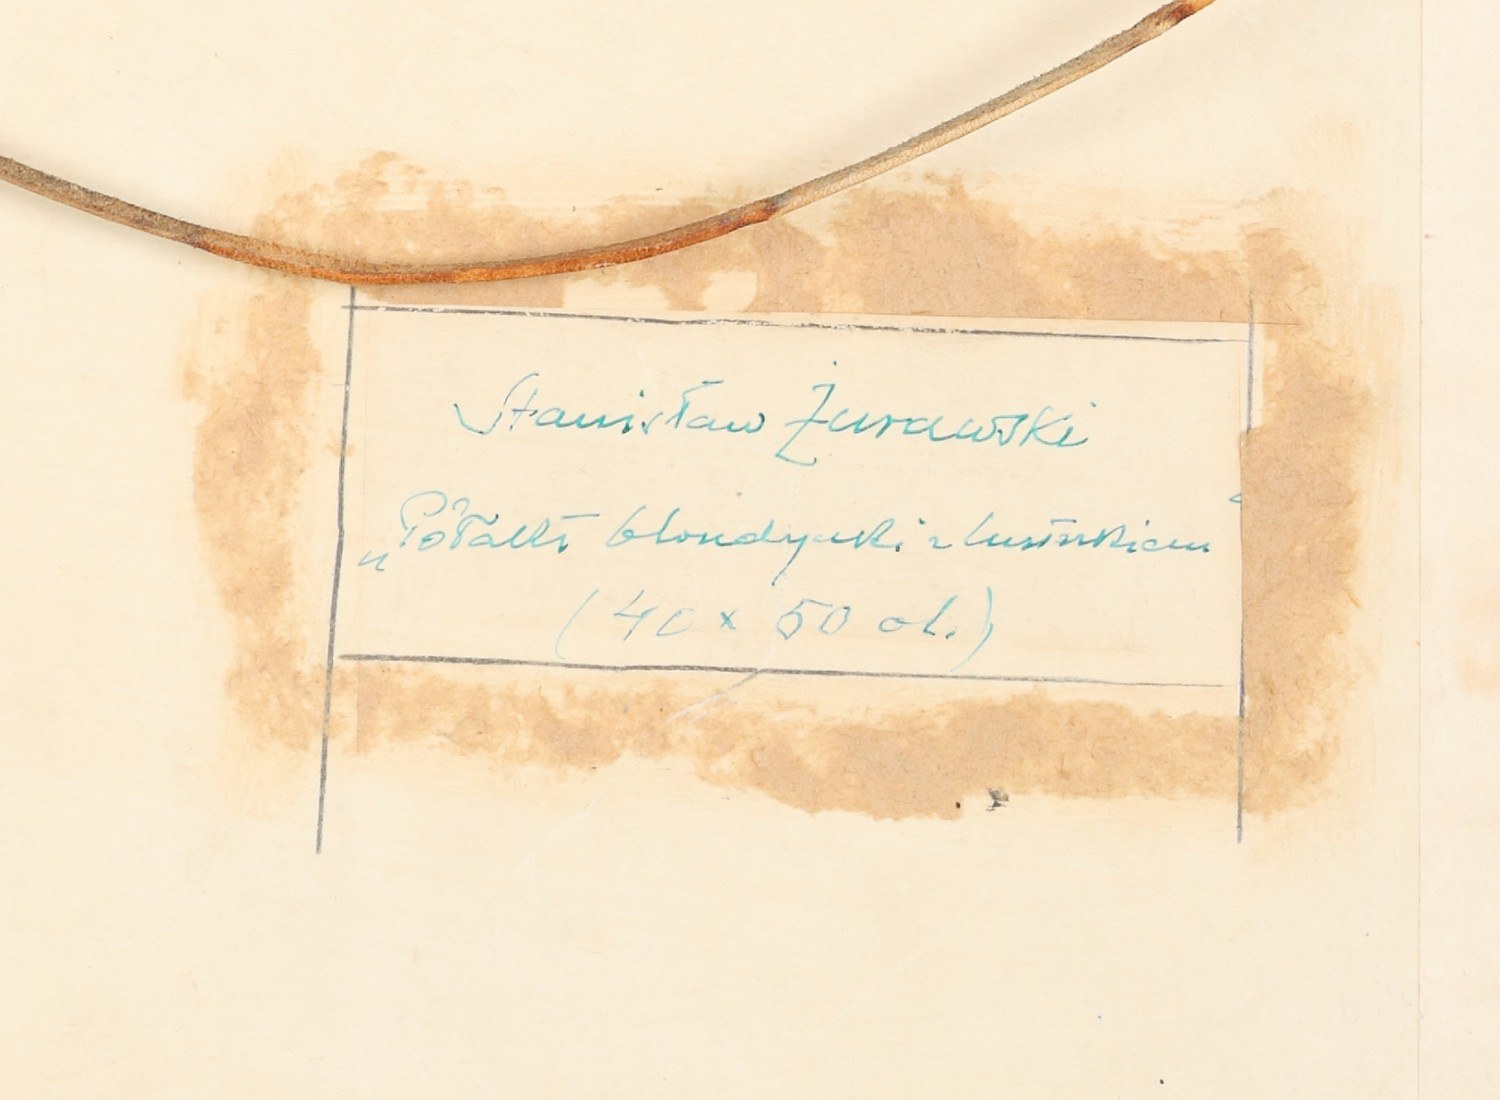 Stanisław Żurawski
„Półakt blondynki z lusterkiem“
(40 x 50 ol.)